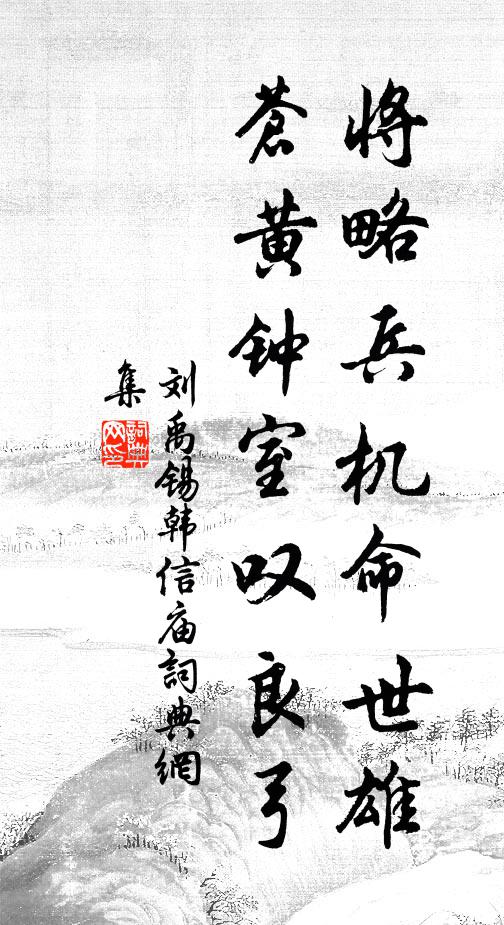 将略兵机命世雄
苍黄钟室叹良弓
刘禹锡韩信庙詞典網
集